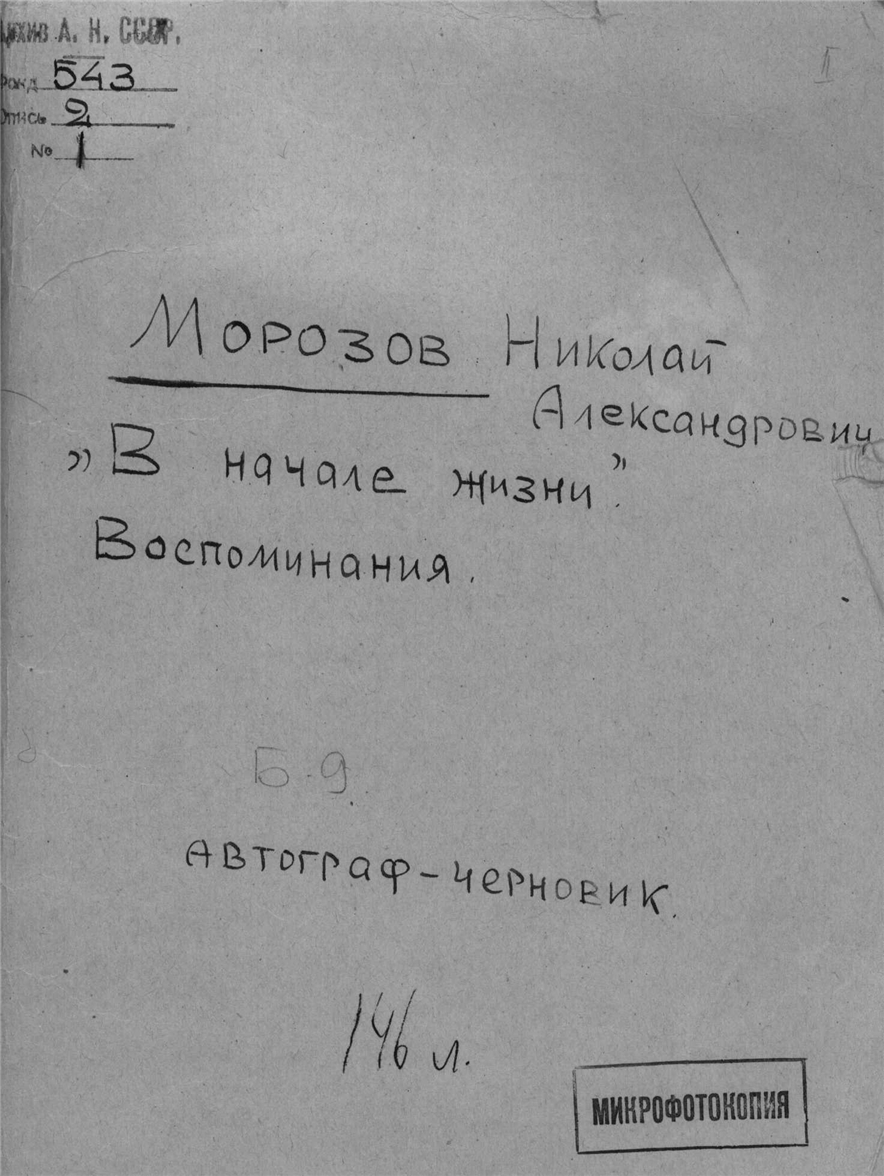 Архив А. Н. СССР.
Фонд 543
Опись 2
№ 1
II
Морозов Николай
Александрович
„В начале жизни”.
Воспоминания.
Б.д.
Автограф-черновик.
146 л.
МИКРОФОТОКОПИЯ